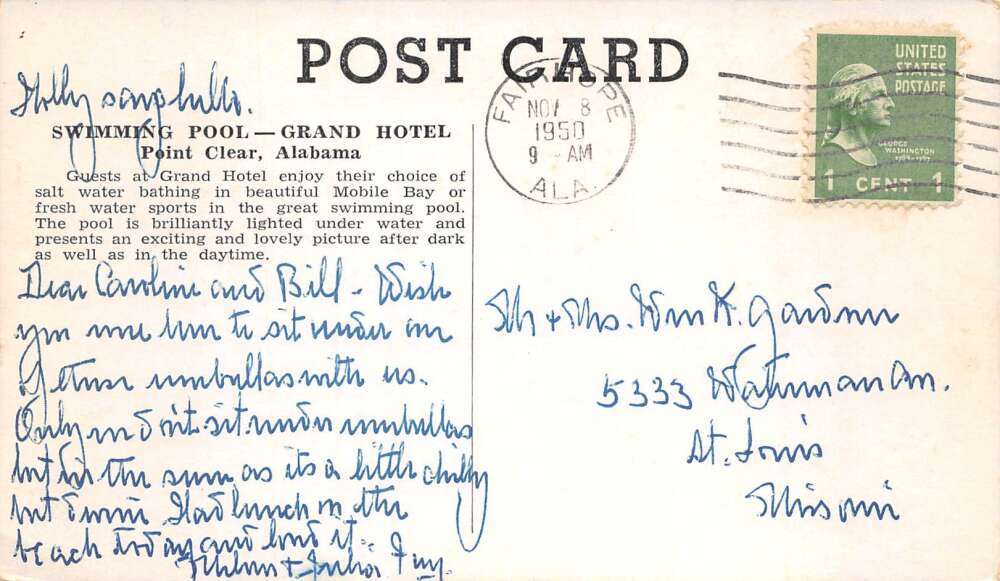 POST CARD
Holly says hello.
SWIMMING POOL — GRAND HOTEL
Point Clear, Alabama
Guests at Grand Hotel enjoy their choice of
salt water bathing in beautiful Mobile Bay or
fresh water sports in the great swimming pool.
The pool is brilliantly lighted under water and
presents an exciting and lovely picture after dark
as well as in the daytime.
Dear Caroline and Bill - Wish
you were here to sit under one
of these umbrellas with us.
Only we don't sit under umbrellas
but in the sun as its a little chilly
but divine. Had lunch on the
beach today and loved it.
& Julia
FAIRHOPE
NOV 8
1950
9 AM
ALA.
UNITED
STATES
POSTAGE
GEORGE
WASHINGTON
1789-1797
1 CENT 1
Mr & Mrs. Wm K. Gardner
5333 Waterman Av.
St. Louis
Missouri